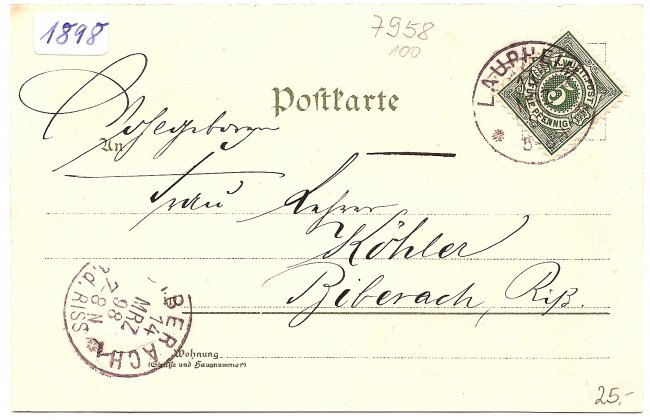 1898
7958
100
Postkarte
LAUPHEIM
5 PFENNIG
An
Wohlgeboren
Frau Lehrer
Köhler
Biberach, Riß.
BIBERACH
14
MRZ
98
7-8N
a.d. RISS
Wohnung
(Straße und Hausnummer)
25.-